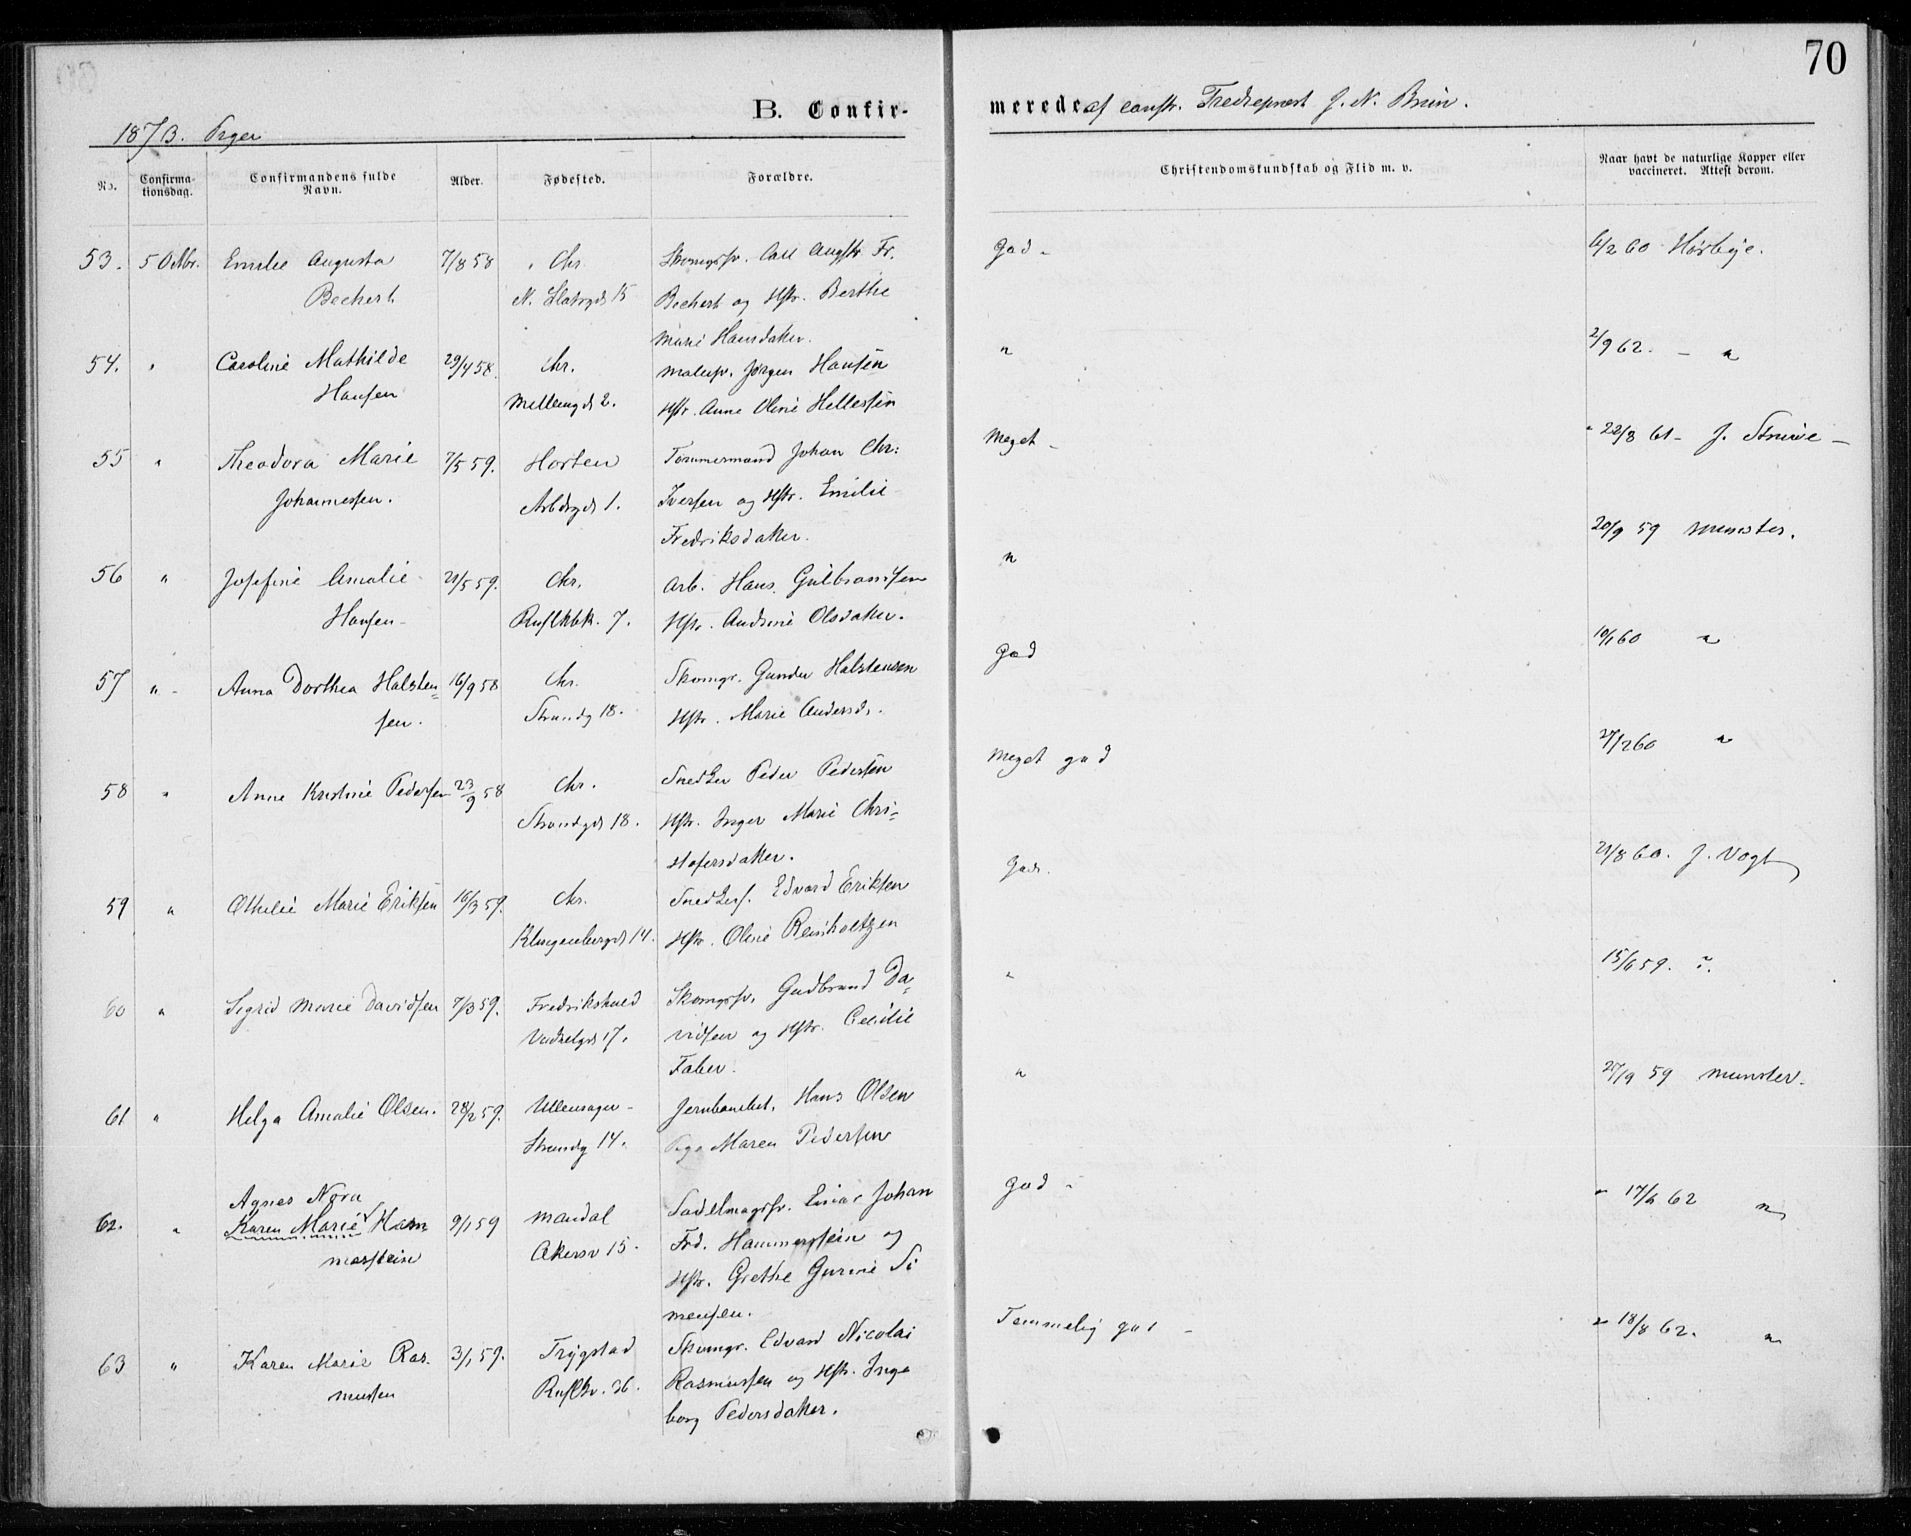 70
B. Confir- merede af constr. Tredieprest J. N. Bruun.
1873. Piger
No. Confirma-tionsdag. Confirmandens fulde Navn. Alder. Fødested. Forældre. Christendomskundskab og Flid m. v. Naar havt de naturlige Kopper eller vaccineret. Attest derom.
53. 5 Octbr. Emilie Augusta 7/8 58 Chr. Skomgsv. Carl Augstr. Fr. God - 6/2 60 Hørbye.
Bechert N. Slotsgd 15 Bechert og Hstr. Berthe
Marie Hansdatter.
54. " Caroline Mathilde 29/4 58. Chr. Malersv. Jørgen Hansen " 2/9 62. - "
Hansen Mellemgd 2. Hstr. Anne Oline Hellesen
55 " Theodora Marie 7/5 59. Horten Tømmermand Johan Chr: Meget - " 22/8 61 - J. Struve -
Johannessen. Arbdsgd 1. Iversen og Hstr. Emilie
Fredriksdatter.
56 " Josefine Amalie 21/5 59. Chr. Arb. Hans Gulbransen " 20/9 59 Munster.
Hansen - Ruslkbk. 7. Hstr. Andrine Olsdatter.
57 " - Anna Dorthea Halsten= 16/9 58 Chr. Skomgr. Gunder Halstensen God 10/1 60 "
sen. Strandg 18. Hstr. Marie Andersd.
58 " Anne Kristine Pedersen 23/9 58 Chr. Snedker Peder Pedersen Meget god 27/2 60 "
Strandgd 18. Hstr. Inger Marie Chri=
stofersdatter.
59 " Othilie Marie Eriksen 16/3 59. Chr. Snedkers. Edvard Eriksen God. 21/8 60. J. Vogt
Klingenbergd 14. Hstr. Oline Reinholtzen
60 " Sigrid Marie Davidsen 7/3 59. Fredrikshald Skomgsv. Gudbrand Da= " 15/6 59. ".
17. vidsen og Hstr. Cecilie
Faber.
61 " Helga Amalie Olsen. 28/2 59. Ullensager - Jernbanebet. Hans Olsen " 27/9 59 Munster.
Strandg 14. Pige Maren Pedersen
Agnes Nora
62. " Karen Marie Ham 9/1 59 Mandal Sadelmagsv. Einar Johan God - " 17/6 62 "
merstein Akersv 15. Frd. Hammerstein og
Hstr. Grethe Gurine Si
mensen.
63 " Karen Marie Ras- 3/1 59. Trygstad Skomgr. Edvard Nicolai Temmelig god - " 18/8 62. "
mussen Ruslkv. 36. Rasmussen og Hstr. Inge
borg Pedersdatter.